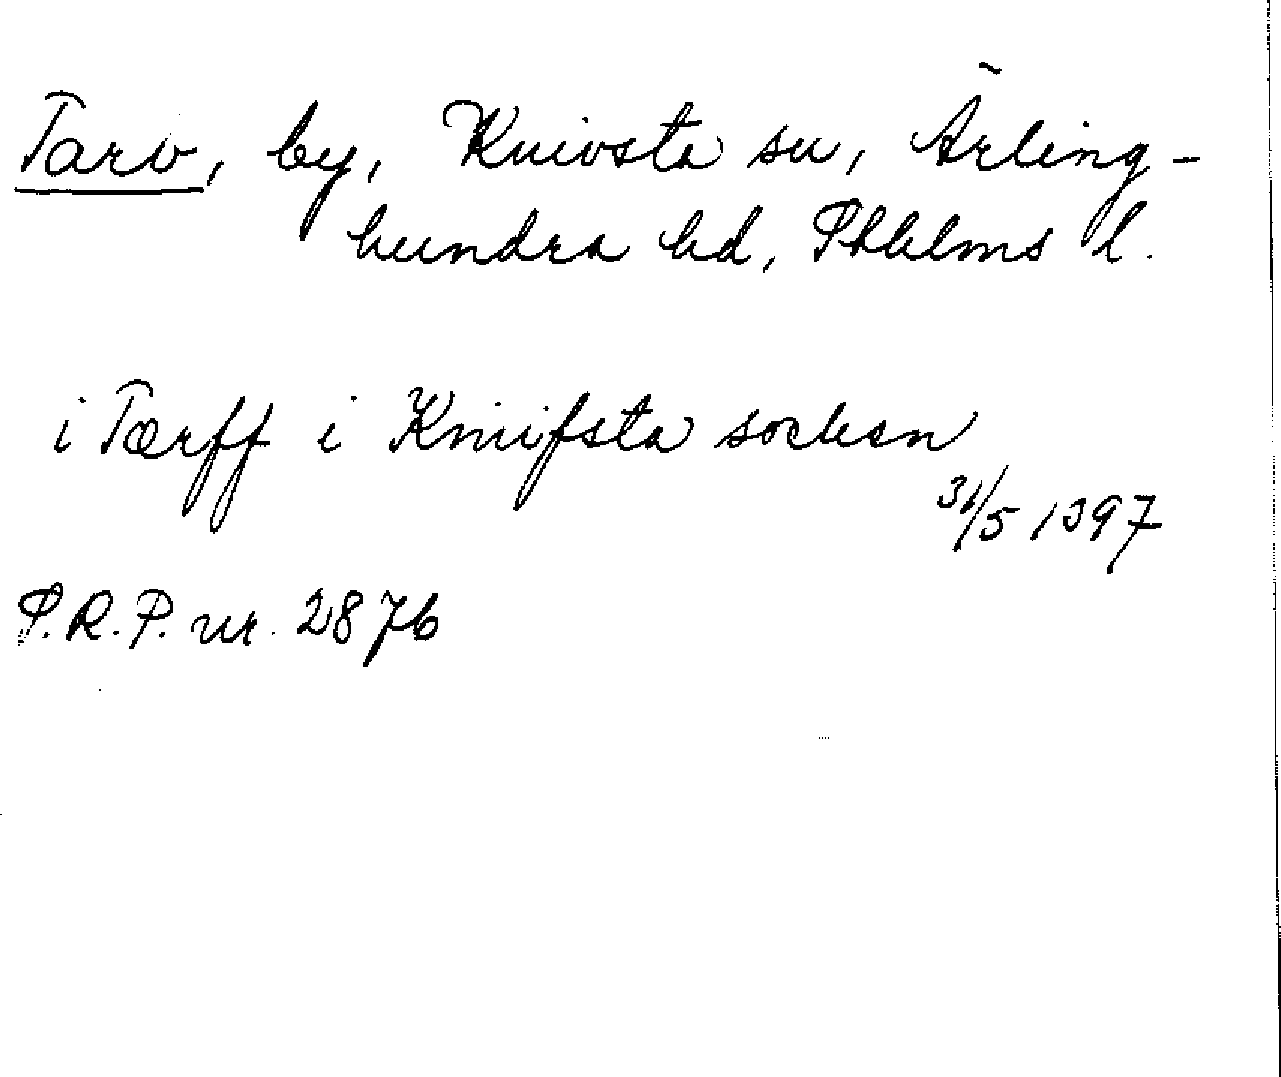 Tarv, by, Knivsta sn, Ärling-
hundra hd, Sthlms l.
i Tærff i Knifsta socken
31/5 1397
S.R.P. nr. 2876